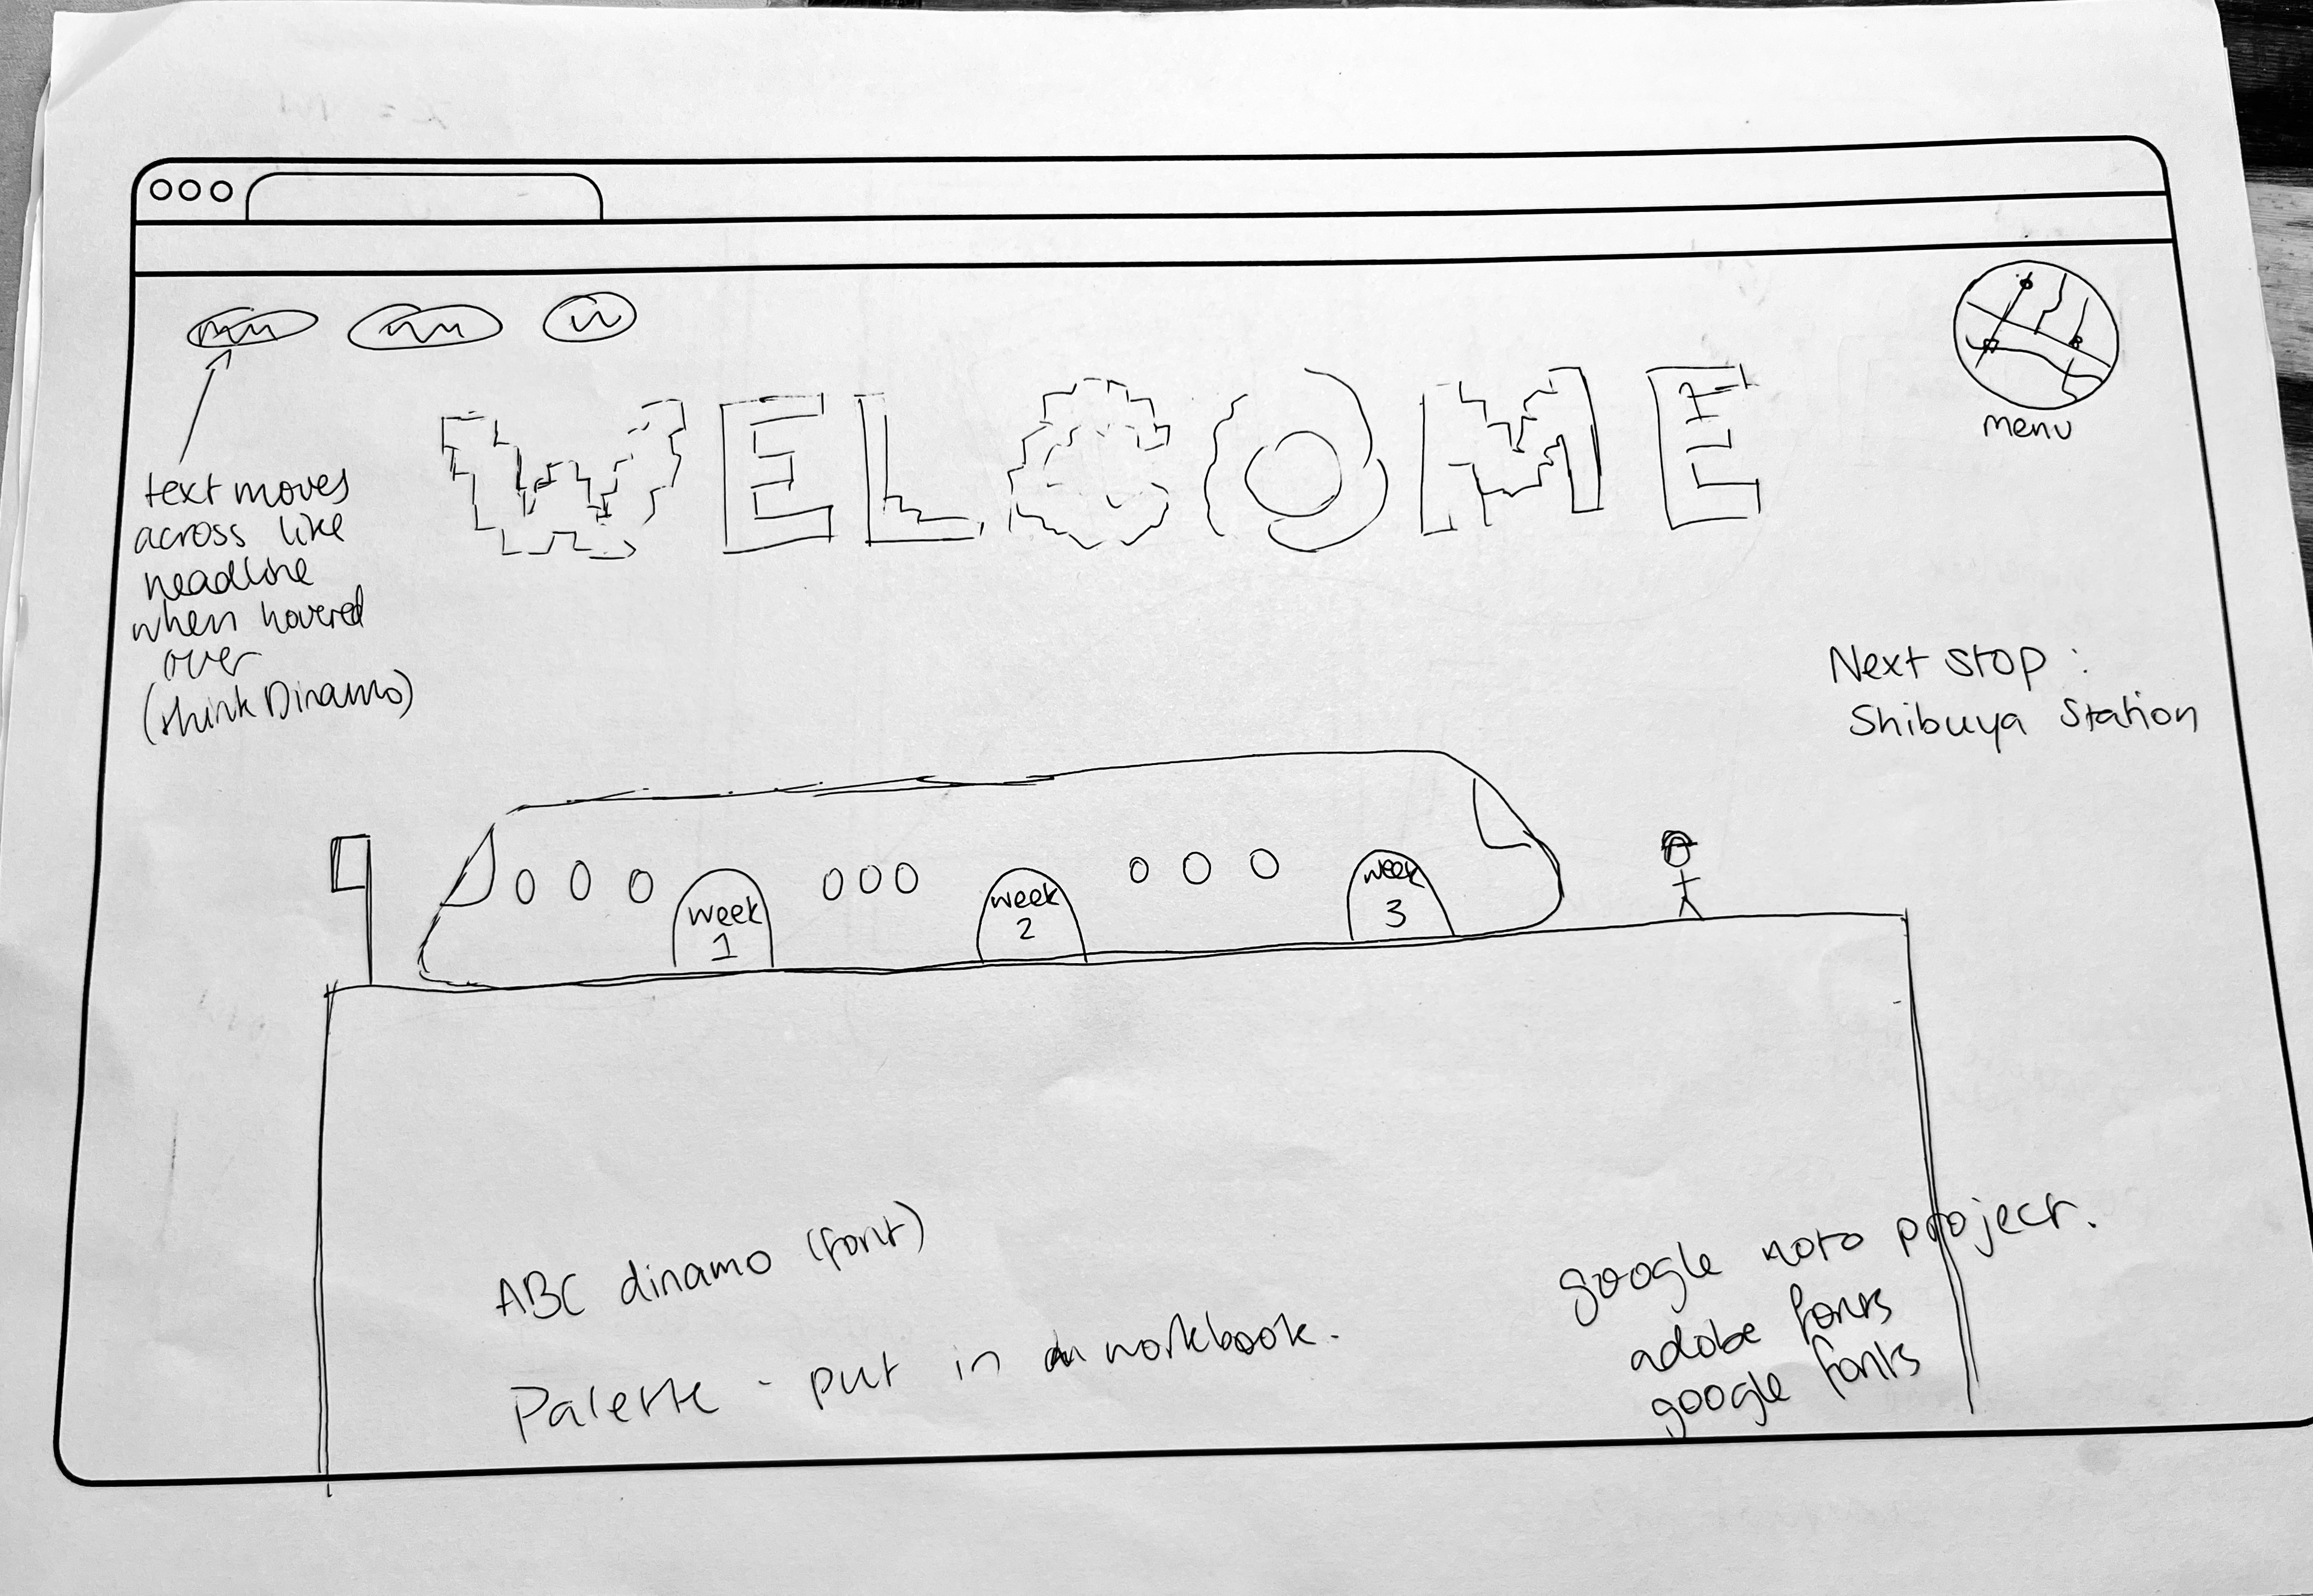 WELCOME
menu
text moves
across like
headline
when hovered
over
(think Dinamo)
Next stop :
Shibuya Station
week
1
week
2
week
3
ABC dinamo (font)
Palette - put in workbook.
google noto project.
adobe fonts
google fonts